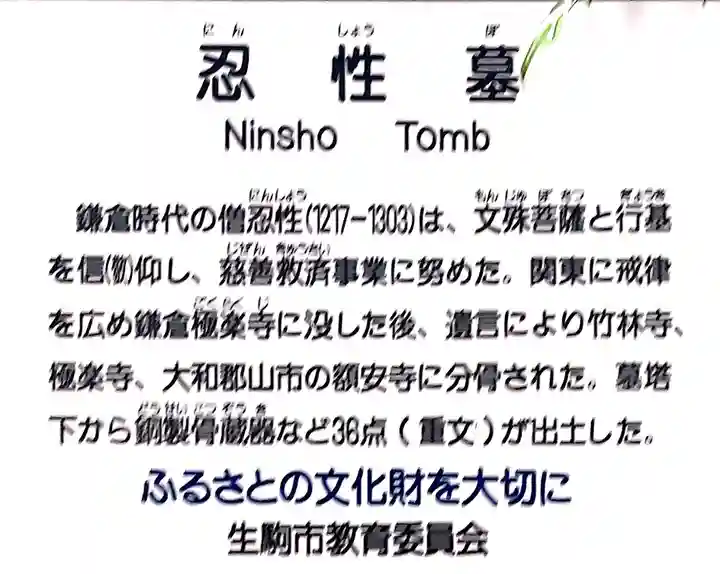 にん しょう ぼ
忍性墓
Ninsho Tomb
にんしょう もんじゅぼさつ ぎょうき
鎌倉時代の僧忍性(1217-1303)は、文殊菩薩と行基
じぜん きゅうさい
を信仰し、慈善救済事業に努めた。関東に戒律
ごくらくじ
を広め鎌倉極楽寺に没した後、遺言により竹林寺、
極楽寺、大和郡山市の額安寺に分骨された。墓塔
どうせいこつぞうき
下から銅製骨蔵器など36点(重文)が出土した。
ふるさとの文化財を大切に
生駒市教育委員会